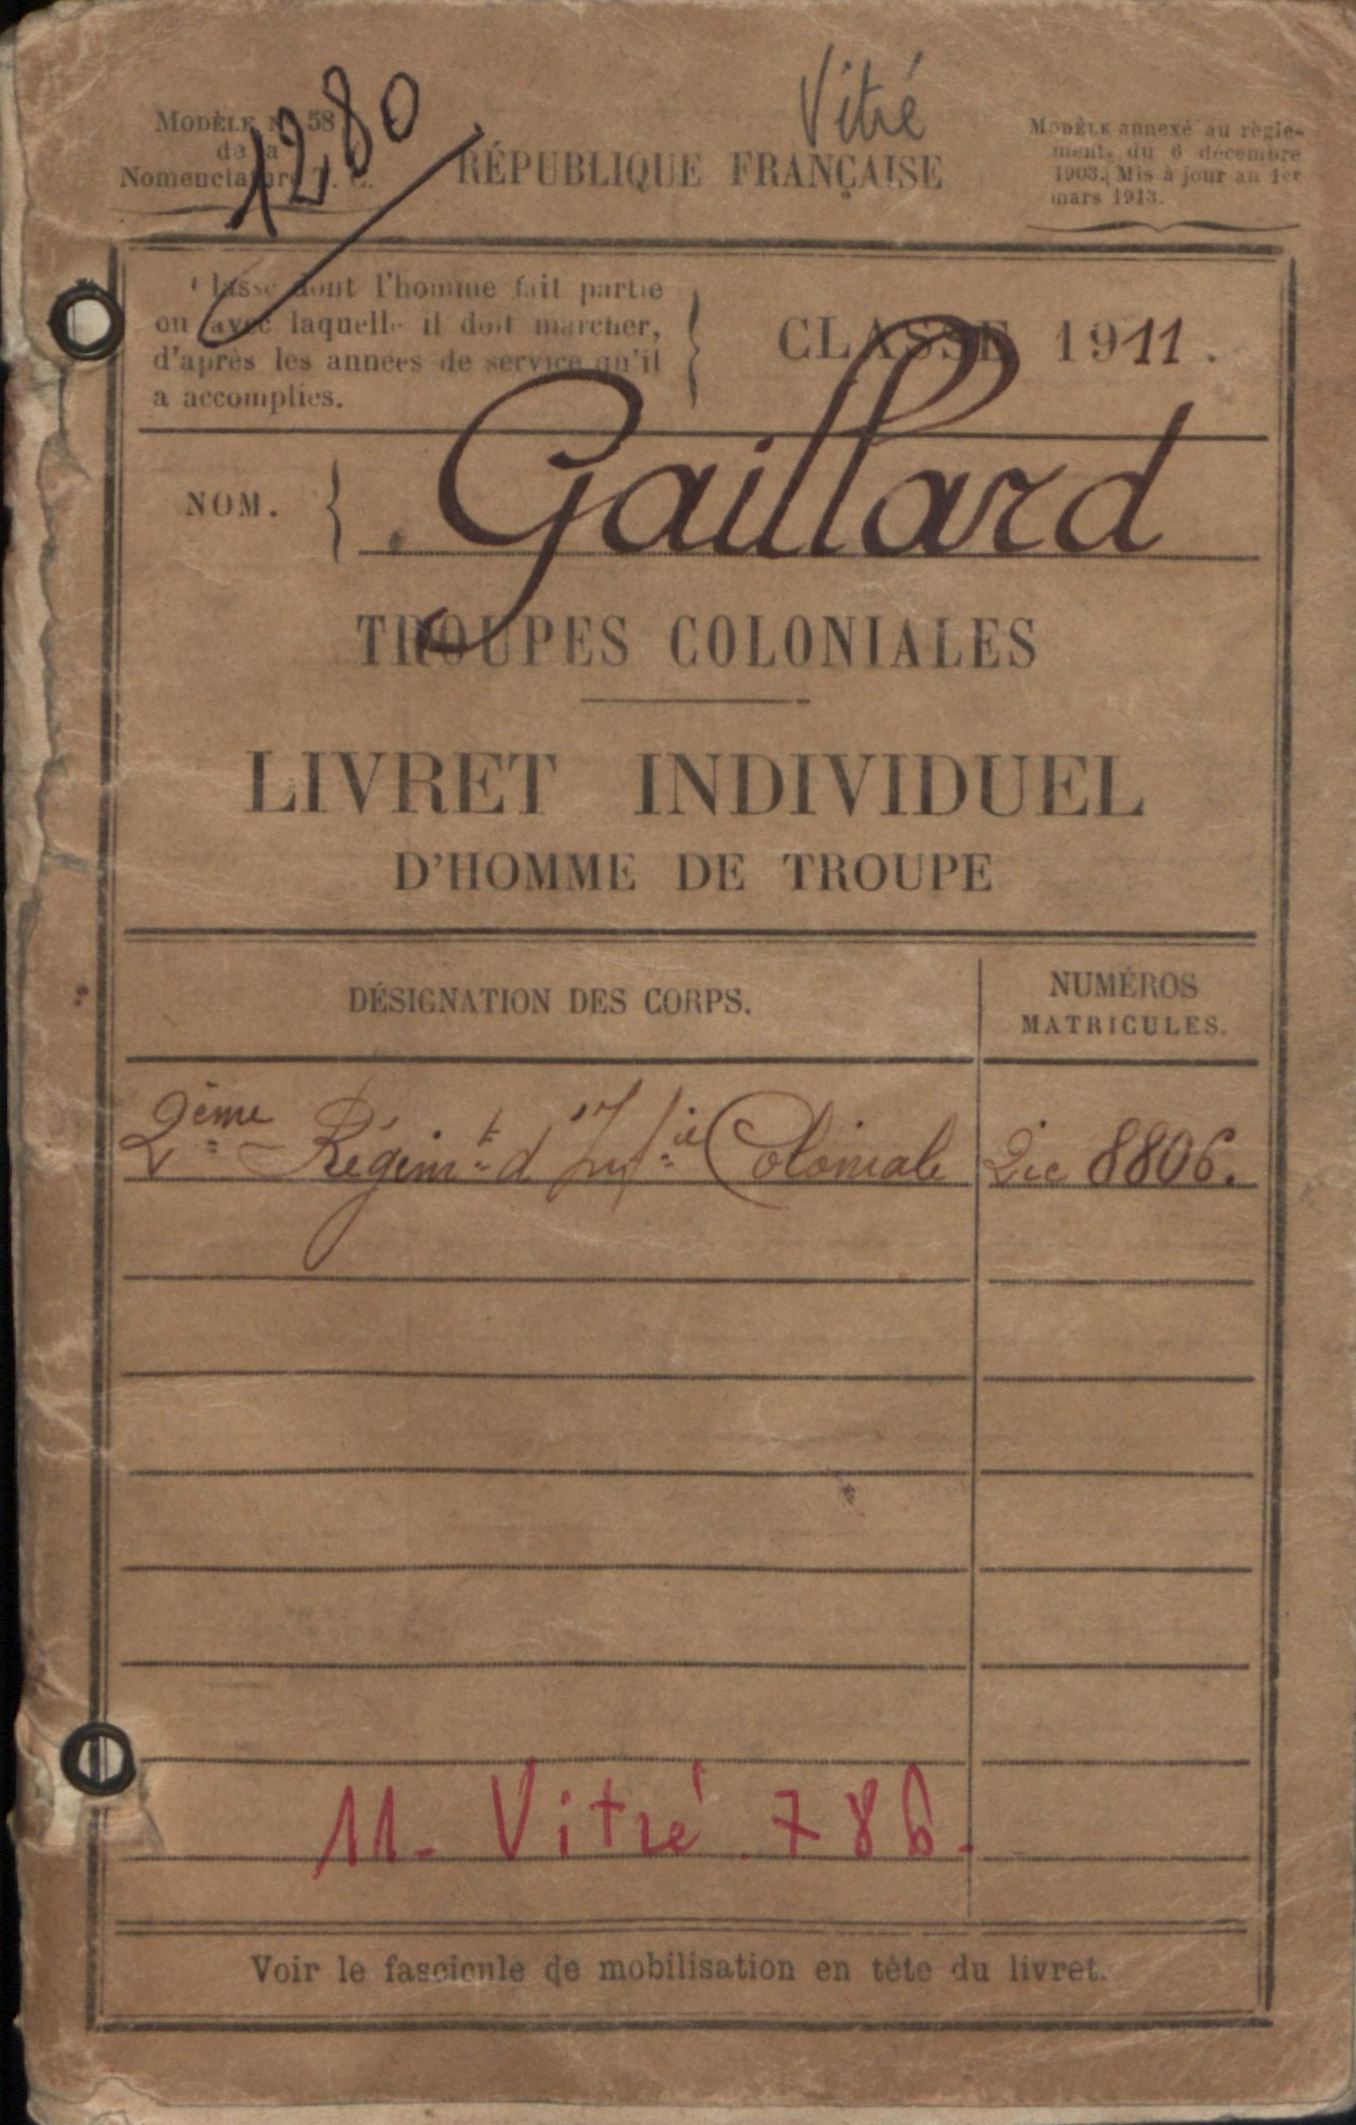 Vitré
1280
MODÈLE N° 58
de la
Nomenclature T. C.
RÉPUBLIQUE FRANÇAISE
MODÈLE annexé au règle-
ment du 6 décembre
1903. Mis à jour au 1er
mars 1913.
Classe dont l'homme fait partie
ou avec laquelle il doit marcher,
d'après les années de service qu'il
a accomplies.
CLASSE 1911.
NOM.
Gaillard
TROUPES COLONIALES
LIVRET INDIVIDUEL
D'HOMME DE TROUPE
DÉSIGNATION DES CORPS.
NUMÉROS
MATRICULES.
2ème Régimt d'Infie Coloniale
2ic 8806.
11. Vitré 786.
Voir le fascicule de mobilisation en tête du livret.